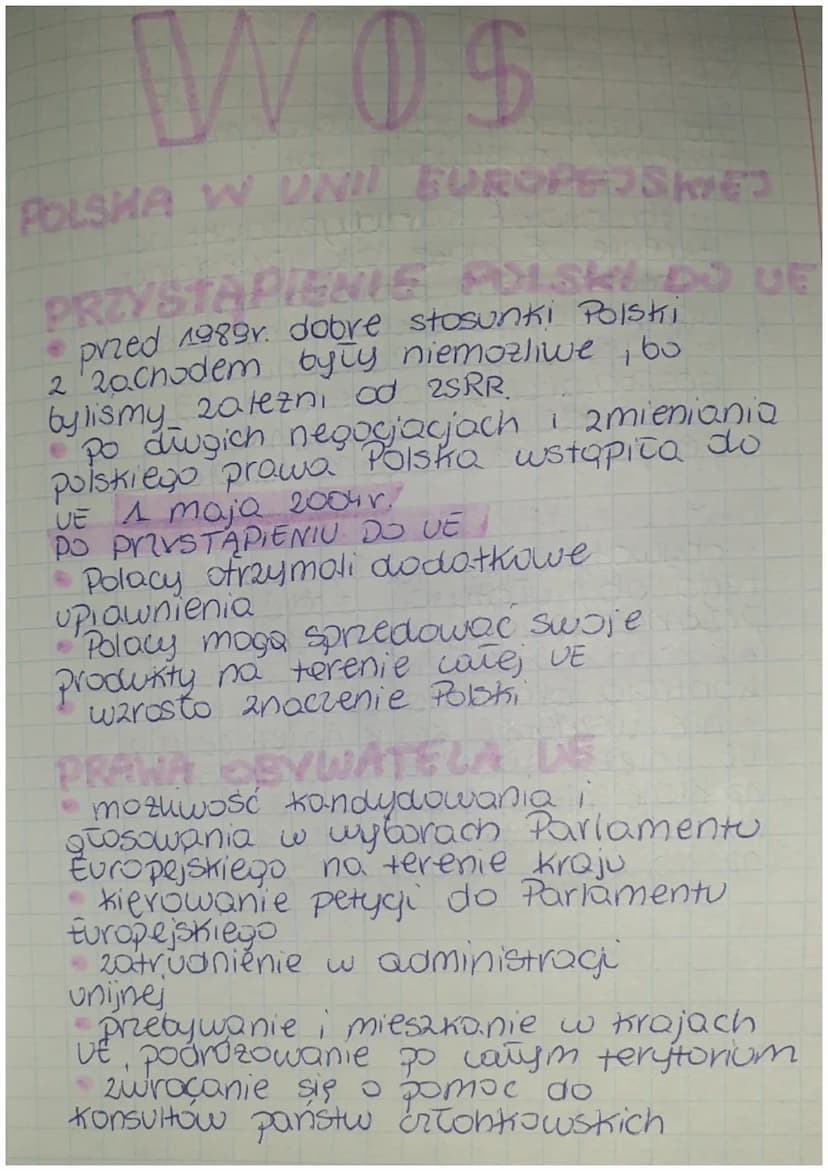 WOS
POLSKA W UNII EUROPEJSKIEJ
PRZYSTĄPIENIE POLSKI DO UE
• przed 1989r. dobre stosunki Polski
z zachodem były niemożliwe, bo
byliśmy zależni od ZSRR.
• po długich negocjacjach i zmieniania
polskiego prawa Polska wstąpiła do
UE 1 maja 2004r.
PO PRZYSTĄPIENIU DO UE
• Polacy otrzymali dodatkowe
uprawnienia
• Polacy mogą sprzedować swoje
produkty na terenie całej UE
• wzrosło znaczenie Polski
PRAWA OBYWATELA UE
• możliwość kandydowania i
głosowania w wyborach Parlamentu
Europejskiego na terenie kraju
• kierowanie petycji do Parlamentu
Europejskiego
• zatrudnienie w administracji
unijnej
• przebywanie i mieszkanie w krajach
UE, podróżowanie po całym terytorium
• zwracanie się o pomoc do
konsultów państw członkowskich